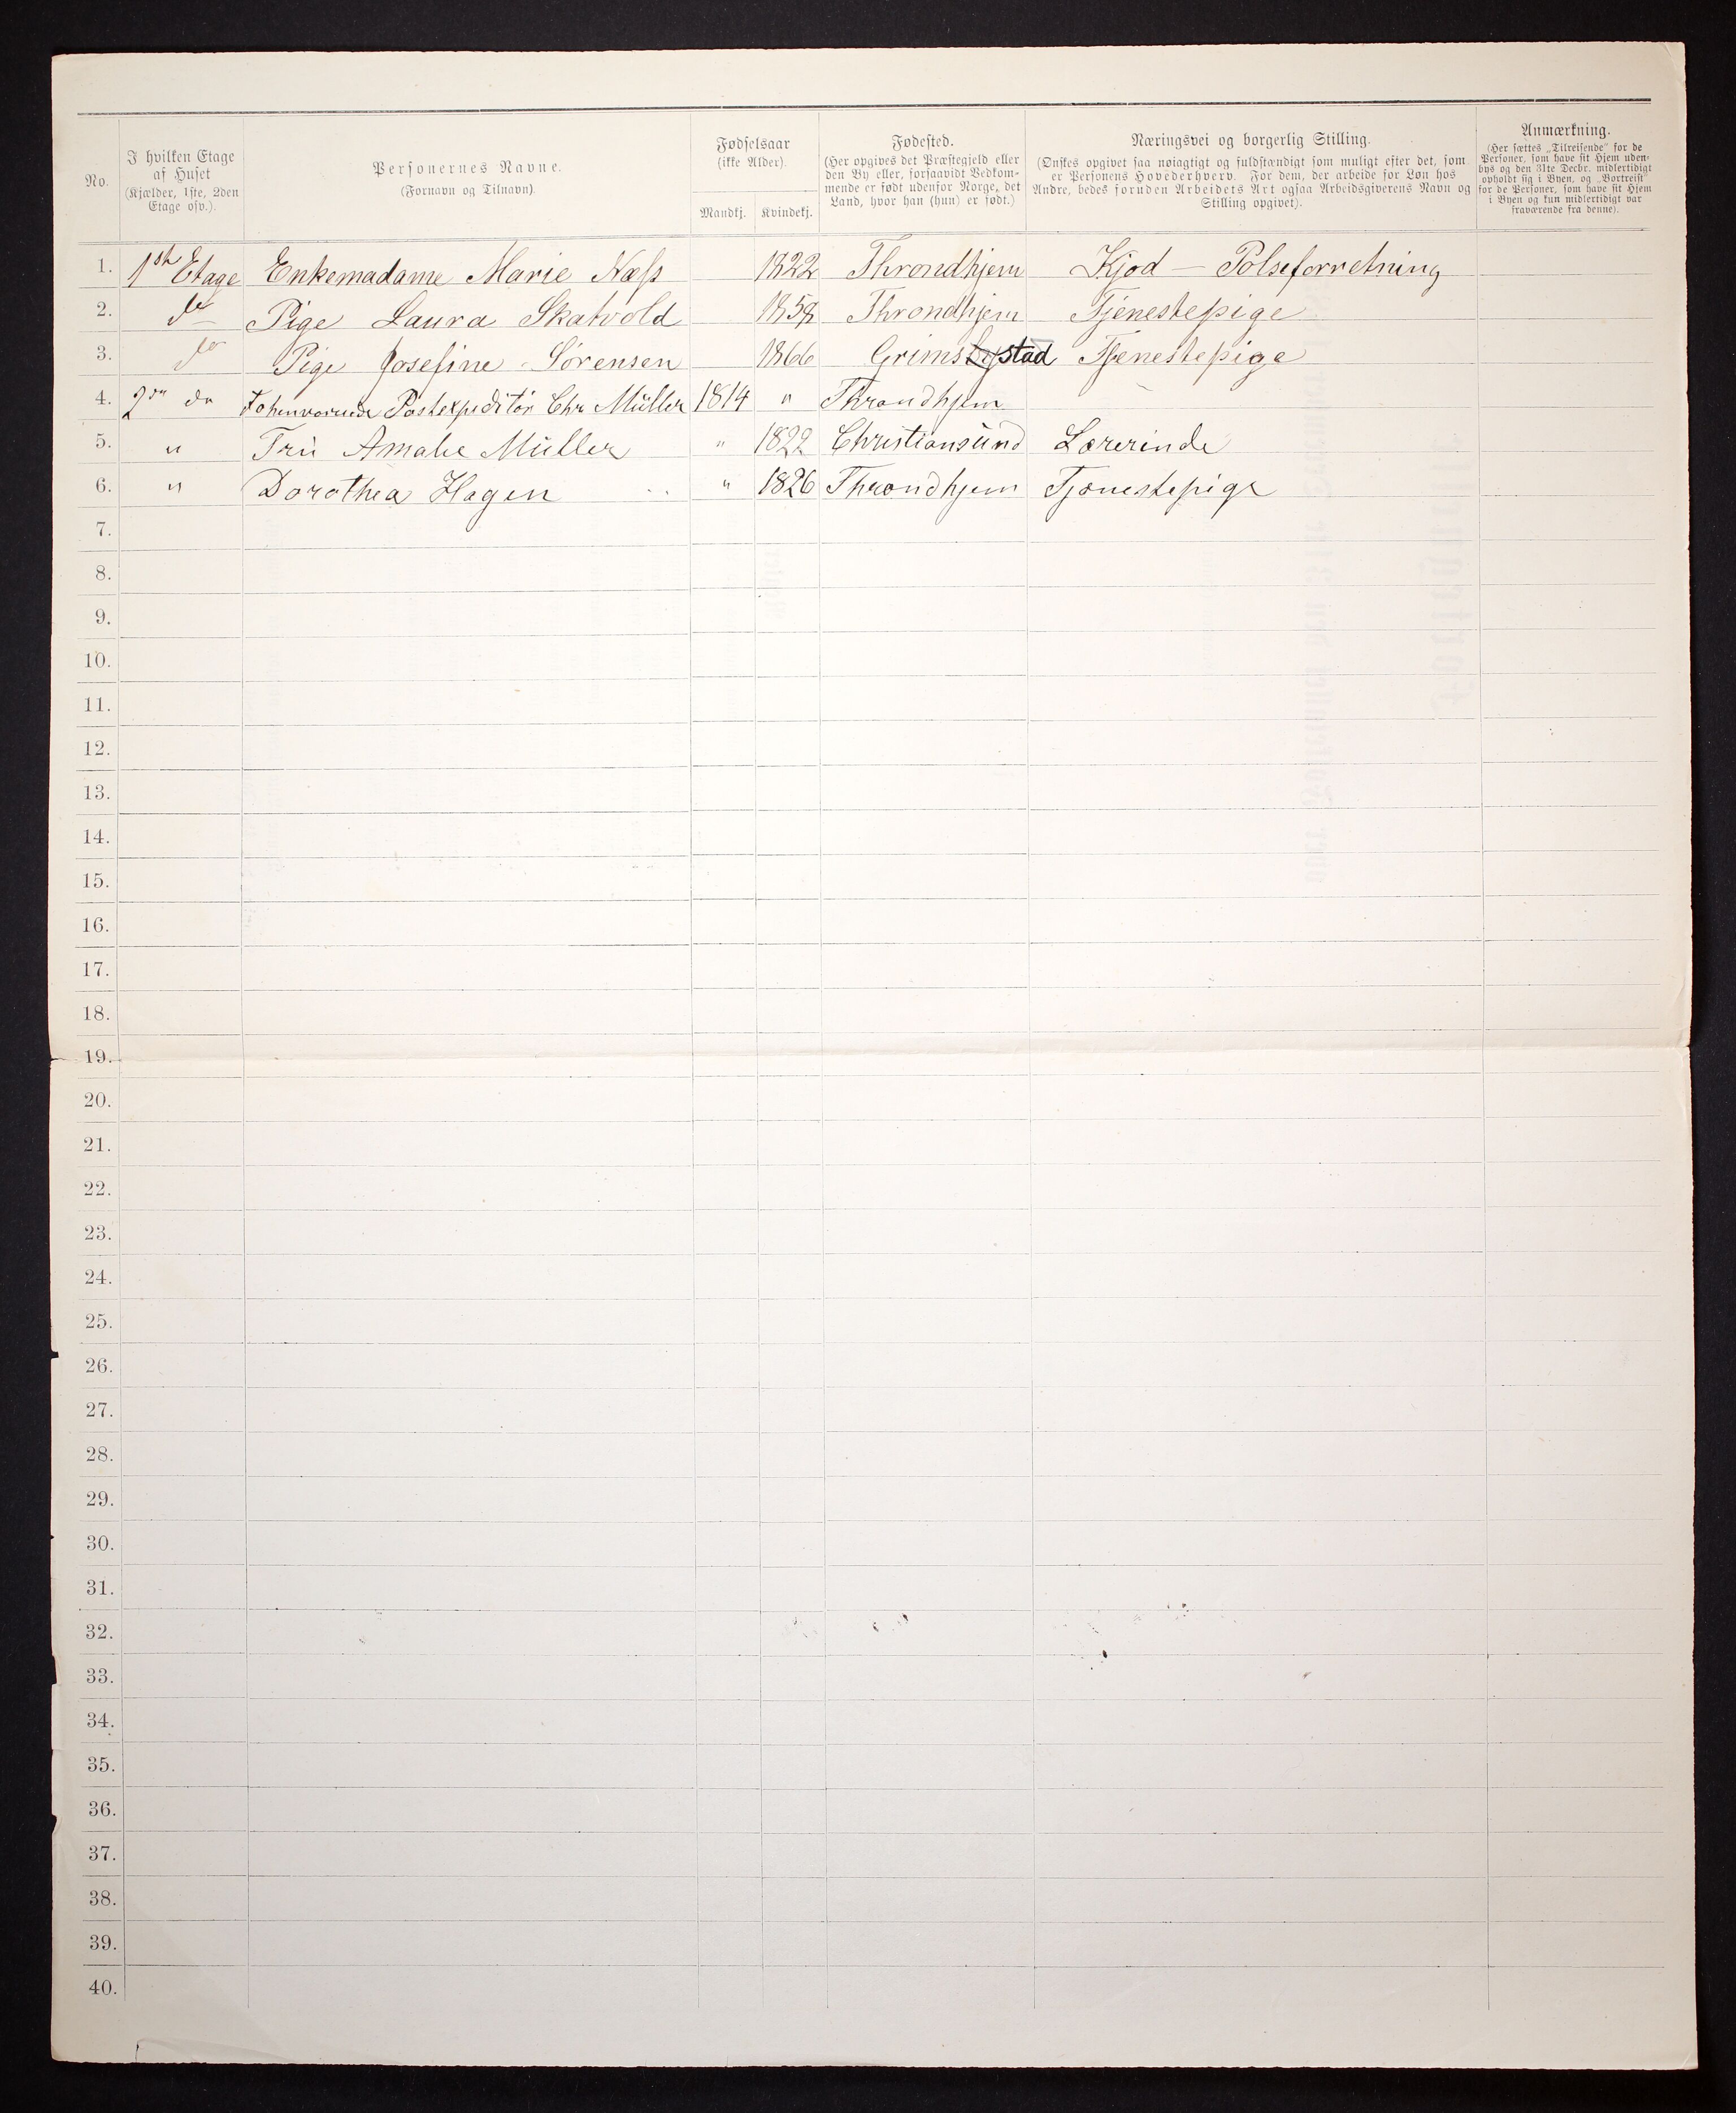 No.
I hvilken Etage af Huset (Kjælder, 1ste, 2den Etage osv.).
Personernes Navne.
(Fornavn og Tilnavn).
Fødselsaar
(ikke Alder).
Mandkj. Kvindekj.
Fødested.
(Her opgives det Præstegjeld eller
den By eller, forsaavidt Vedkom-
mende er født udenfor Norge, det
Land, hvor han (hun) er født.)
Næringsvei og borgerlig Stilling.
(Ønskes opgivet saa nøiagtigt og fuldstændigt som muligt efter det, som
er Personens Hovederhverv. For dem, der arbeide for Løn hos
Andre, bedes foruden Arbeidets Art ogsaa Arbeidsgiverens Navn og
Stilling opgivet).
Anmærkning.
(Her sættes „Tilreisende" for de
Personer, som have sit Hjem uden-
bys og den 31te Decbr. midlertidigt
opholdt sig i Byen, og „Bortreist"
for de Personer, som have sit Hjem
i Byen og kun midlertidigt var
fraværende fra denne).
1. 1ste Etage Enkemadame Marie Næss 1822 Throndhjem Kjød - Polseforretning
2. do Pige Laura Skatvold 1858 Throndhjem Tjenestepige
3. do Pige Josefine Sørensen 1866 Grimsbystad Tjenestepige
4. 2den do Postexpeditör Chr Müller 1814 " Throndhjem
5. " Frü Amalie Müller " 1822 Christiansünd Lærerinde
6. " Dorothea Hagen " 1826 Throndhjem Tjenestepige
7.
8.
9.
10.
11.
12.
13.
14.
15.
16.
17.
18.
19.
20.
21.
22.
23.
24.
25.
26.
27.
28.
29.
30.
31.
32.
33.
34.
35.
36.
37.
38.
39.
40.